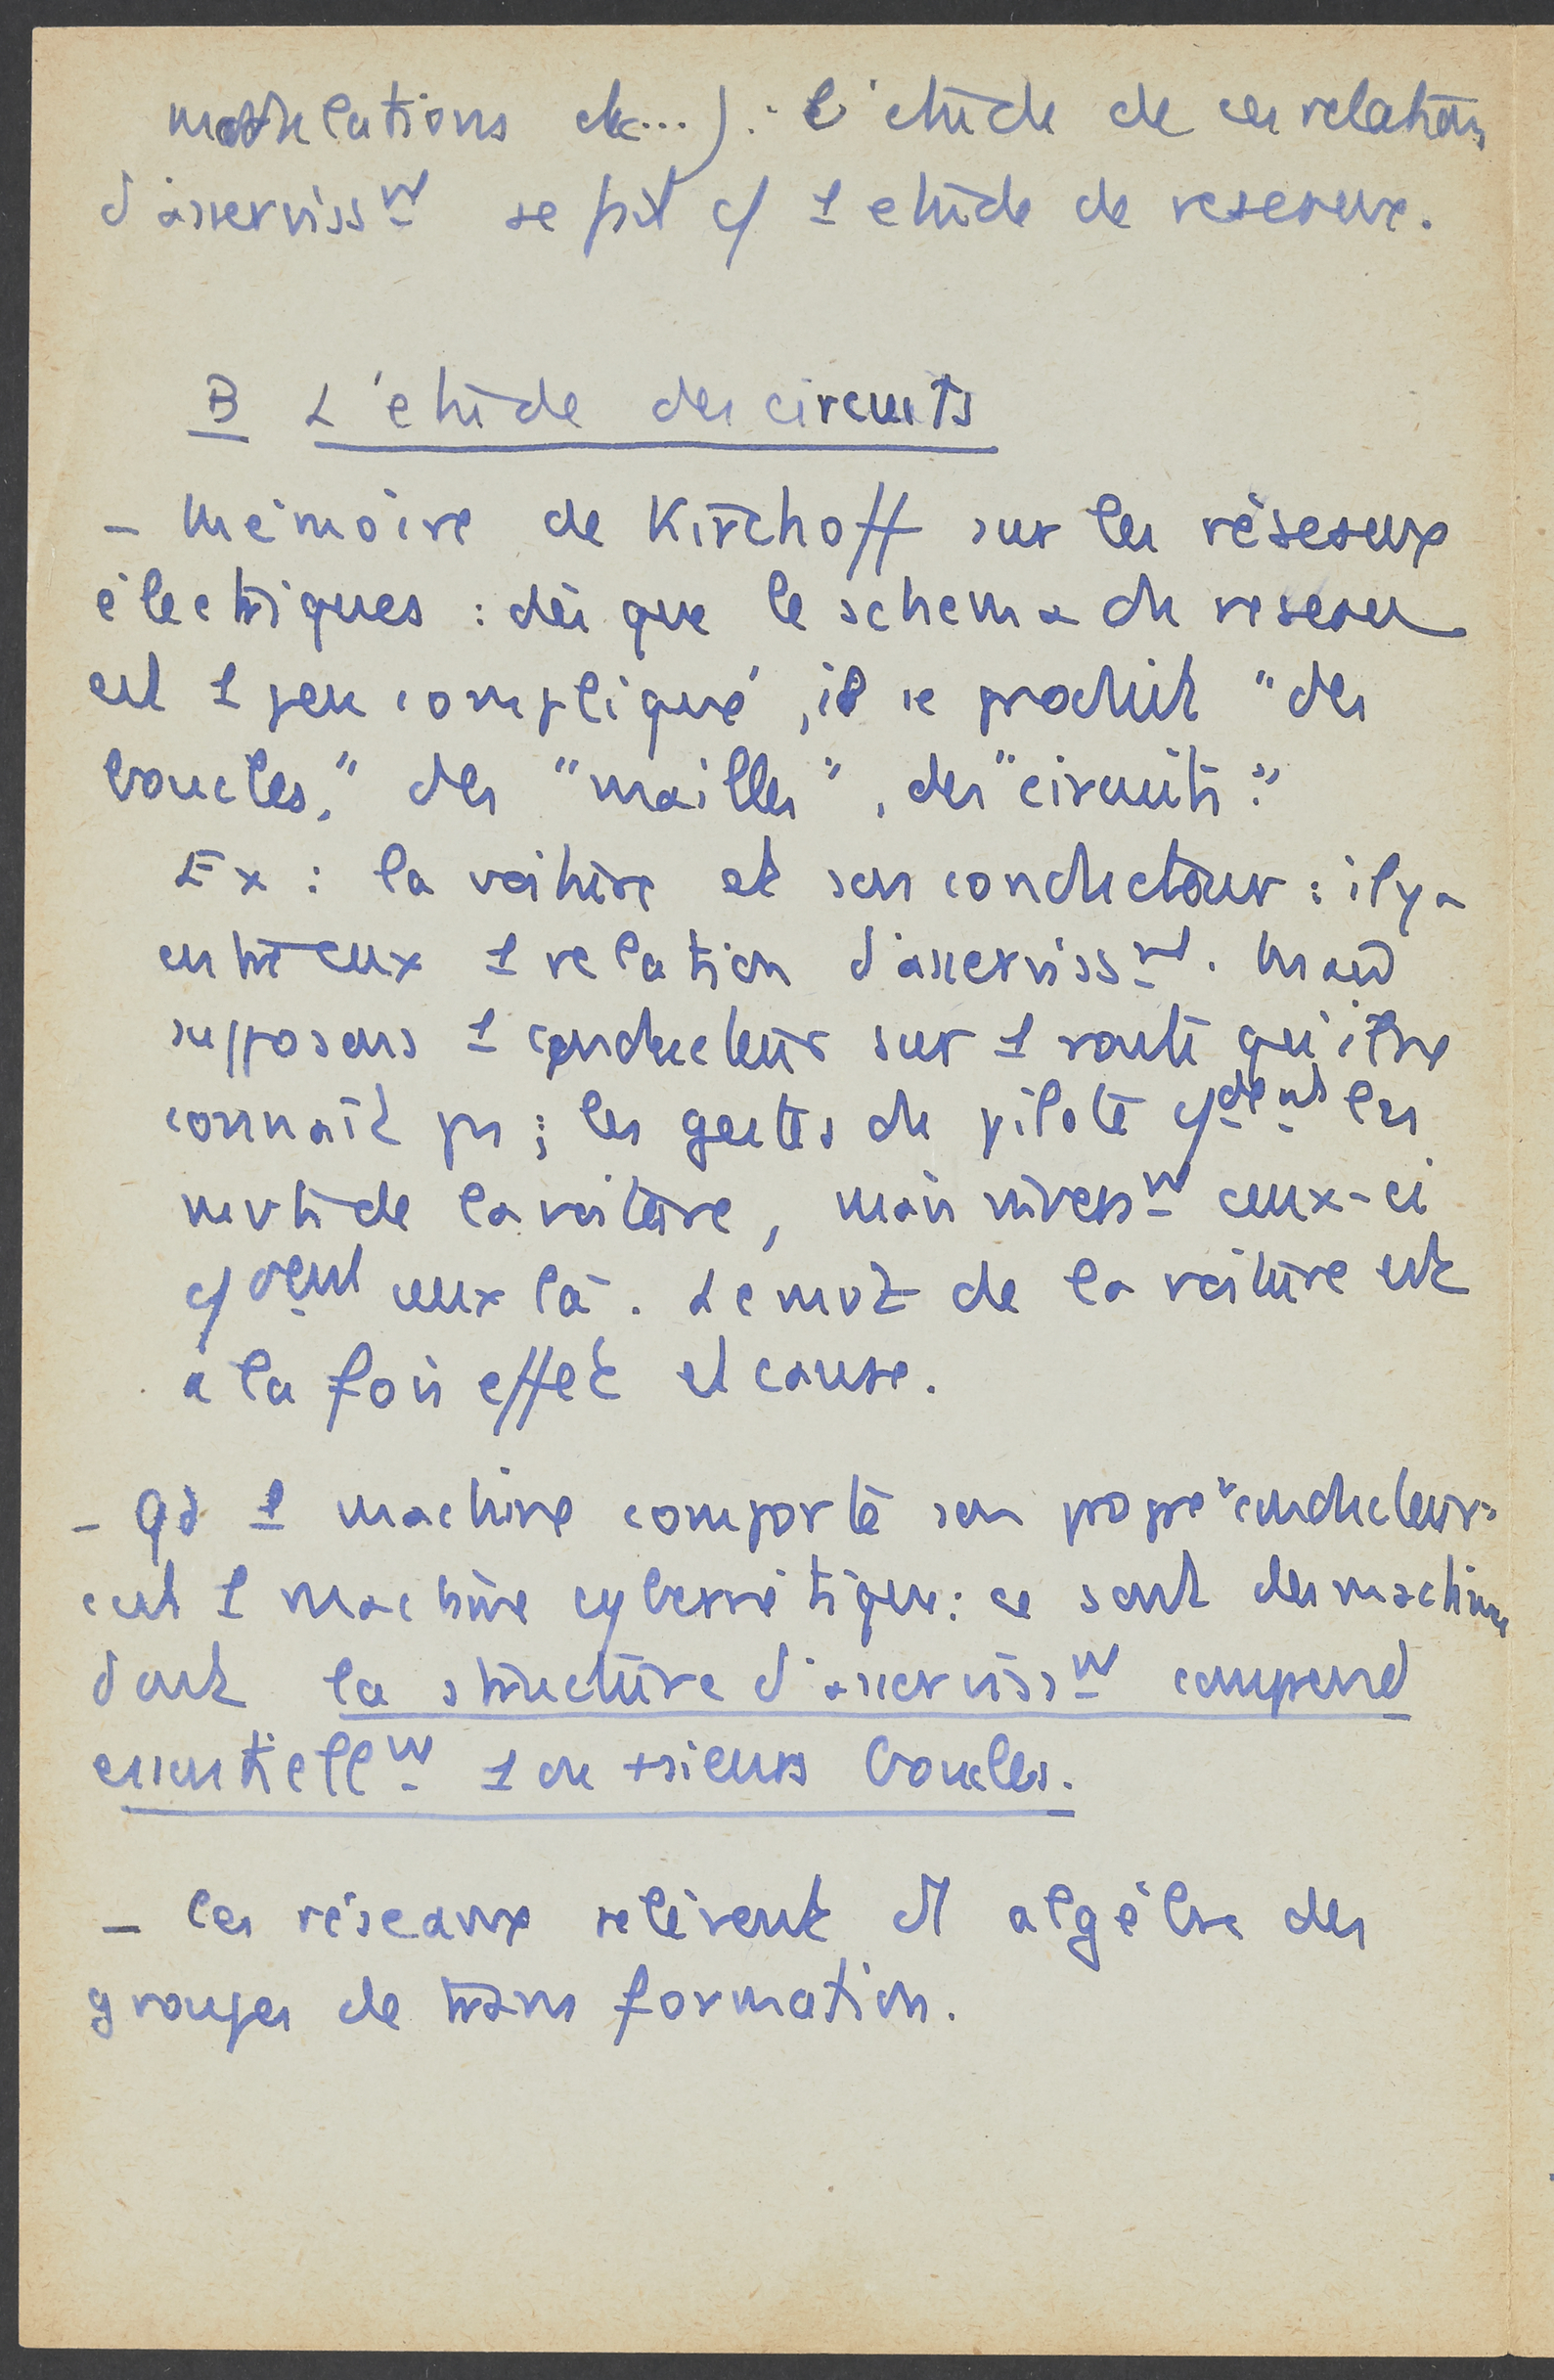 modulations etc...). L'étude de ces relations
d'asservisst se fait c/ 1 étude de reseaux.
B L'étude des circuits
- Mémoire de Kirchoff sur les réseaux
électriques : dès que le schema du reseau
est 1 peu compliqué, il se produit "des
boucles," des "mailles", des "circuits".
Ex : la voiture et son conducteur : il y a
entre eux 1 relation d'asservisst. Mais
supposons 1 conducteur sur 1 route qu'il ne
connaît pas ; les gestes du pilote c/dent les
mvts de la voiture, mais inversst ceux-ci
c/dent ceux là. Le mvt de la voiture est
à la fois effet et cause.
- Qd 1 machine comporte son propre "conducteur"
c'est 1 machine cybernétique : ce sont des machines
dont la structure d'asservisst comprend
essentiellt 1 ou +sieurs boucles.
- Ces réseaux relèvent d'1 algèbre des
groupes de transformation.